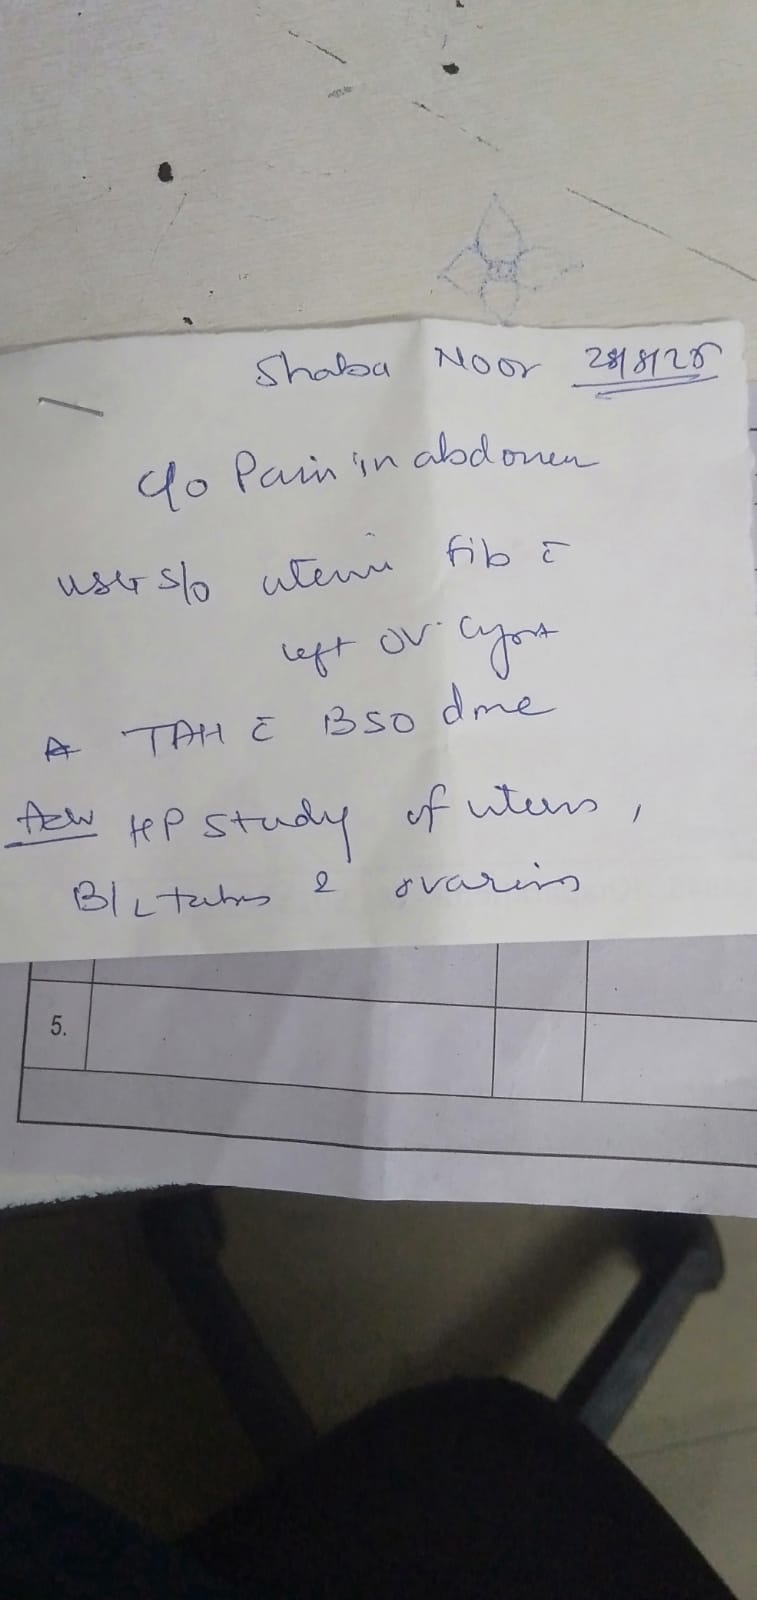 Shaba Noor 28/8/25
c/o Pain in abdomen
USG s/o uterine fib c̄
left ov. cyst
A TAH c̄ BSO done
Adv HP study of uterus,
B/L tubes & ovaries
5.